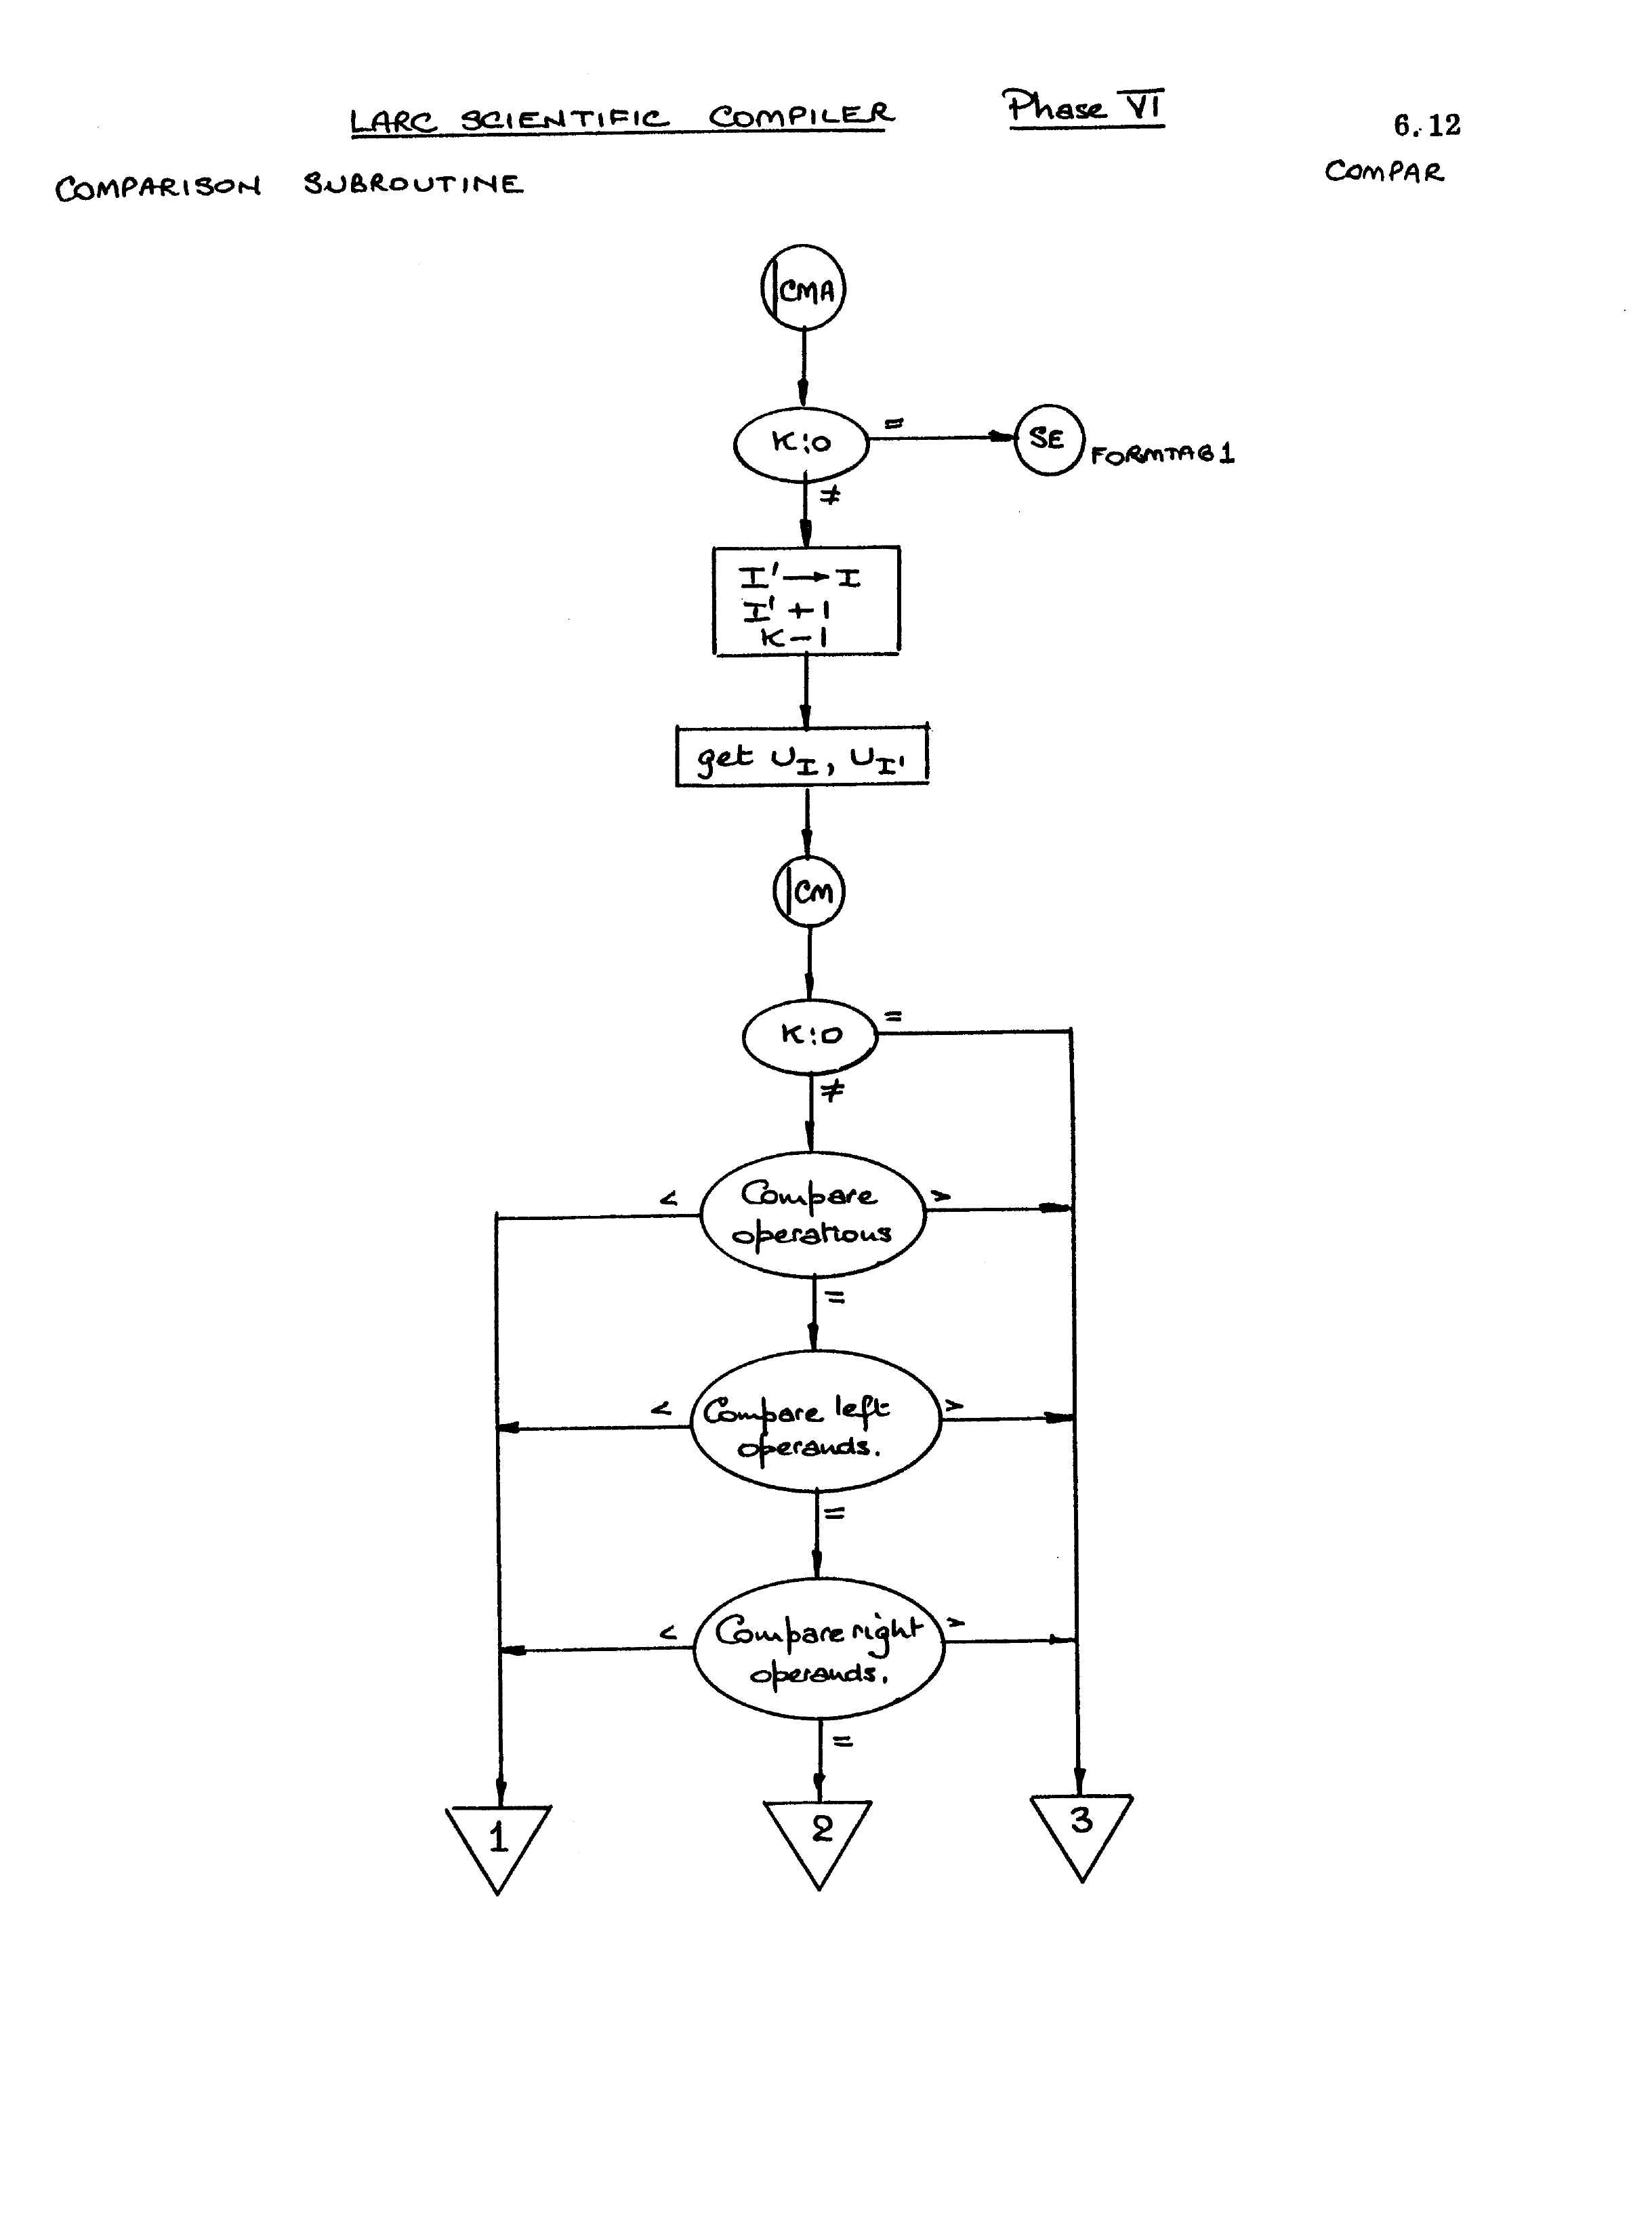 LARC SCIENTIFIC COMPILER Phase VI
6.12
COMPARISON SUBROUTINE
COMPAR
CMA
K:0
=
SE
FORMTAB1
≠
I' → I
I' + 1
K - 1
get U_I, U_I'
CM
K:0
=
≠
Compare
operations
<
>
=
Compare left
operands.
<
>
=
Compare right
operands.
<
>
=
1
2
3